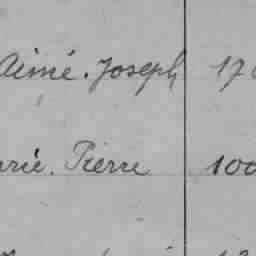 Aimé. Joseph 17
rié. Pierre 100